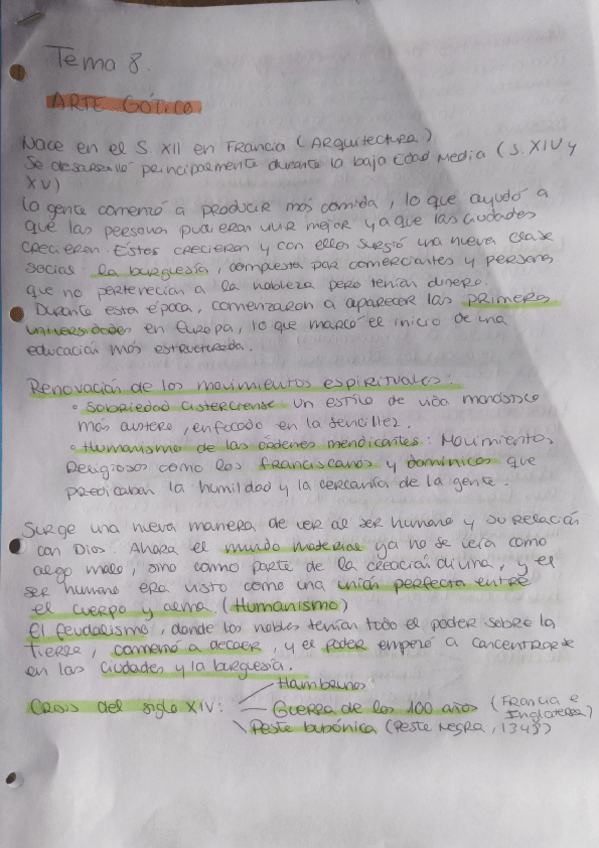 Tema 8.
ARTE GÓTICO
Nace en el S. XII en Francia (Arquitectura)
Se desarrolló principalmente durante la baja Edad Media (S. XIV y
XV)
La gente comenzó a producir más comida, lo que ayudó a
que las personas pudieran vivir mejor ya que las ciudades
crecieran. Estas crecieran y con ellas surgió una nueva clase
social: la burguesía, compuesta por comerciantes y personas
que no pertenecían a la nobleza pero tenían dinero.
Durante esta época, comenzaron a aparecer las primeras
universidades en Europa, lo que marcó el inicio de una
educación más estructurada.
Renovación de los movimientos espirituales:
• Sobriedad cisterciense un estilo de vida monástico
más austero, enfocado en la sencillez.
• Humanismo de las órdenes mendicantes: Movimientos
religiosos como los franciscanos y dominicos que
predicaban la humildad y la cercanía de la gente.
Surge una nueva manera de ver al ser humano y su relación
con Dios. Ahora el mundo material ya no se veía como
algo malo, sino como parte de la creación divina, y el
ser humano era visto como una unión perfecta entre
el cuerpo y alma. (Humanismo)
El feudalismo, donde los nobles tenían todo el poder sobre la
tierra, comenzó a decaer, y el poder empezó a concentrarse
en las ciudades y la burguesía.
Hambrunas
Crisis del siglo XIV: Guerra de los 100 años (Francia e
Inglaterra)
Peste bubónica (Peste Negra, 1348)